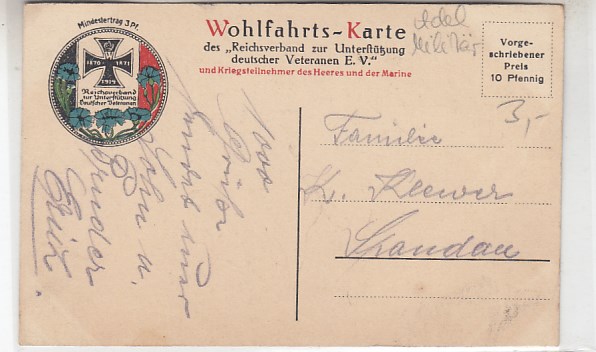 Mindestertrag 3 Pf.
1870 1871
1914
Reichsverband
zur Unterstützung
Deutscher Veteranen
Wohlfahrts-Karte
des „Reichsverband zur Unterstützung
deutscher Veteranen E. V."
und Kriegsteilnehmer des Heeres und der Marine
Adel
Militär
Vorge-
schriebener
Preis
10 Pfennig
3,-
Grüße
sendet Euer
Sohn u.
Bruder
Familie
K.